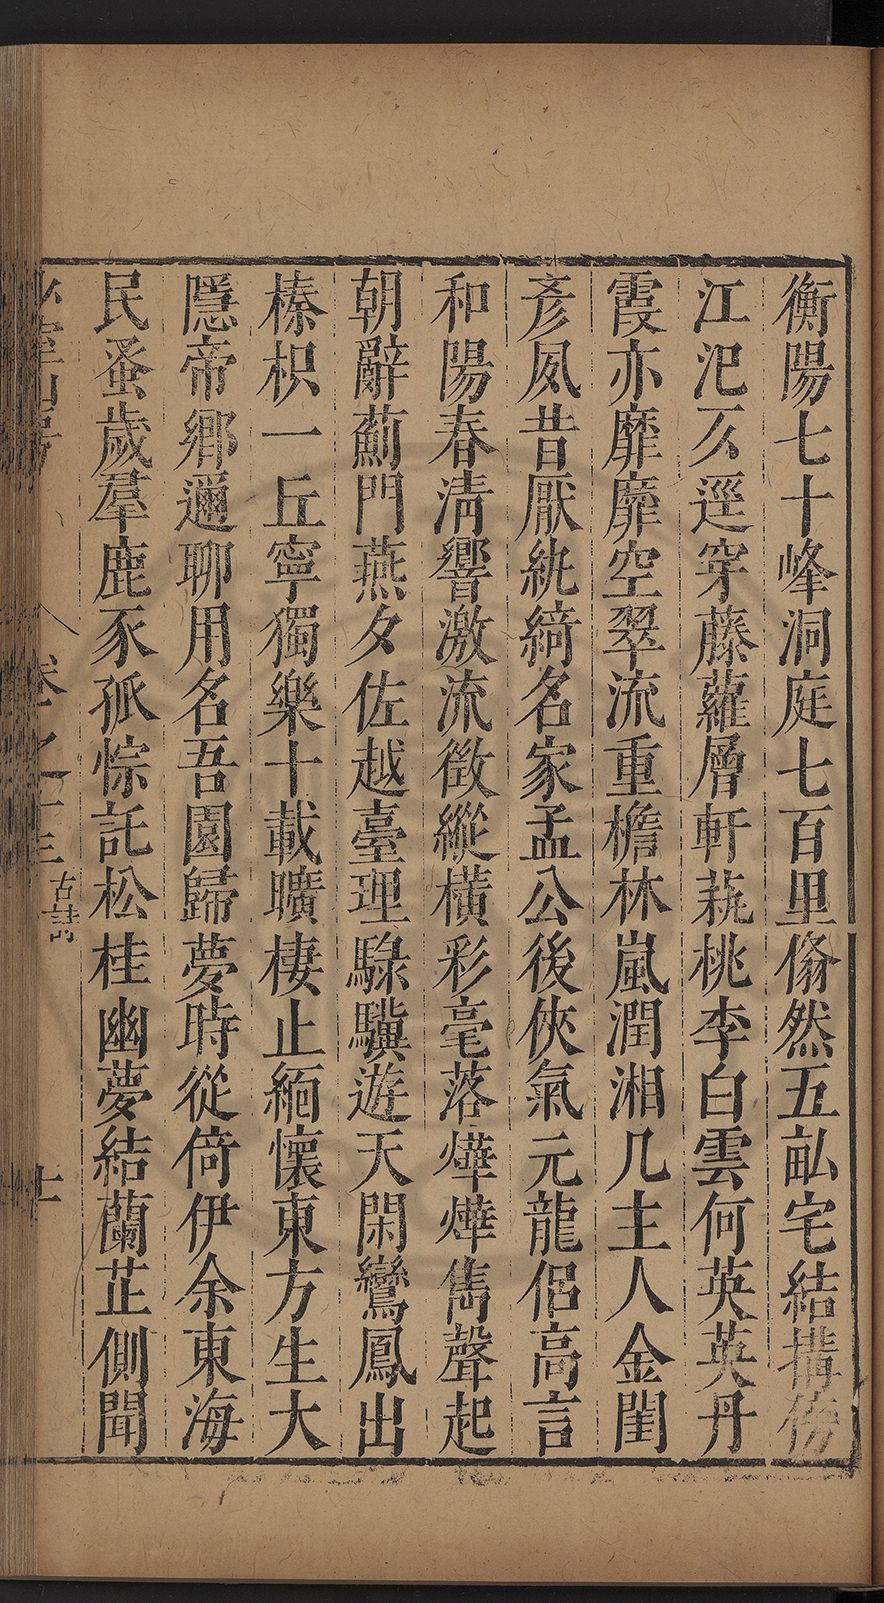 衡陽七十峰洞庭七百里翛然五畝宅結搆傍
江汜仄逕穿藤蘿層軒蓻桃李白雲何英英丹
霞亦靡靡空翠流重檐林嵐潤湘几主人金閨
彥夙昔厭紈綺名家孟公後俠氣元龍侶高言
和陽春清響激流徴縱橫彩毫落燁燁雋聲起
朝辭薊門燕夕佐越臺理騄驥遊天閑鸞鳳出
榛枳一丘寧獨樂十載曠棲止緬懷東方生大
隱帝鄉邇聊用名吾園歸夢時從倚伊余東海
民蚤歲羣鹿豕孤悰託松桂幽夢結蘭芷側聞
卷之十三 古詩